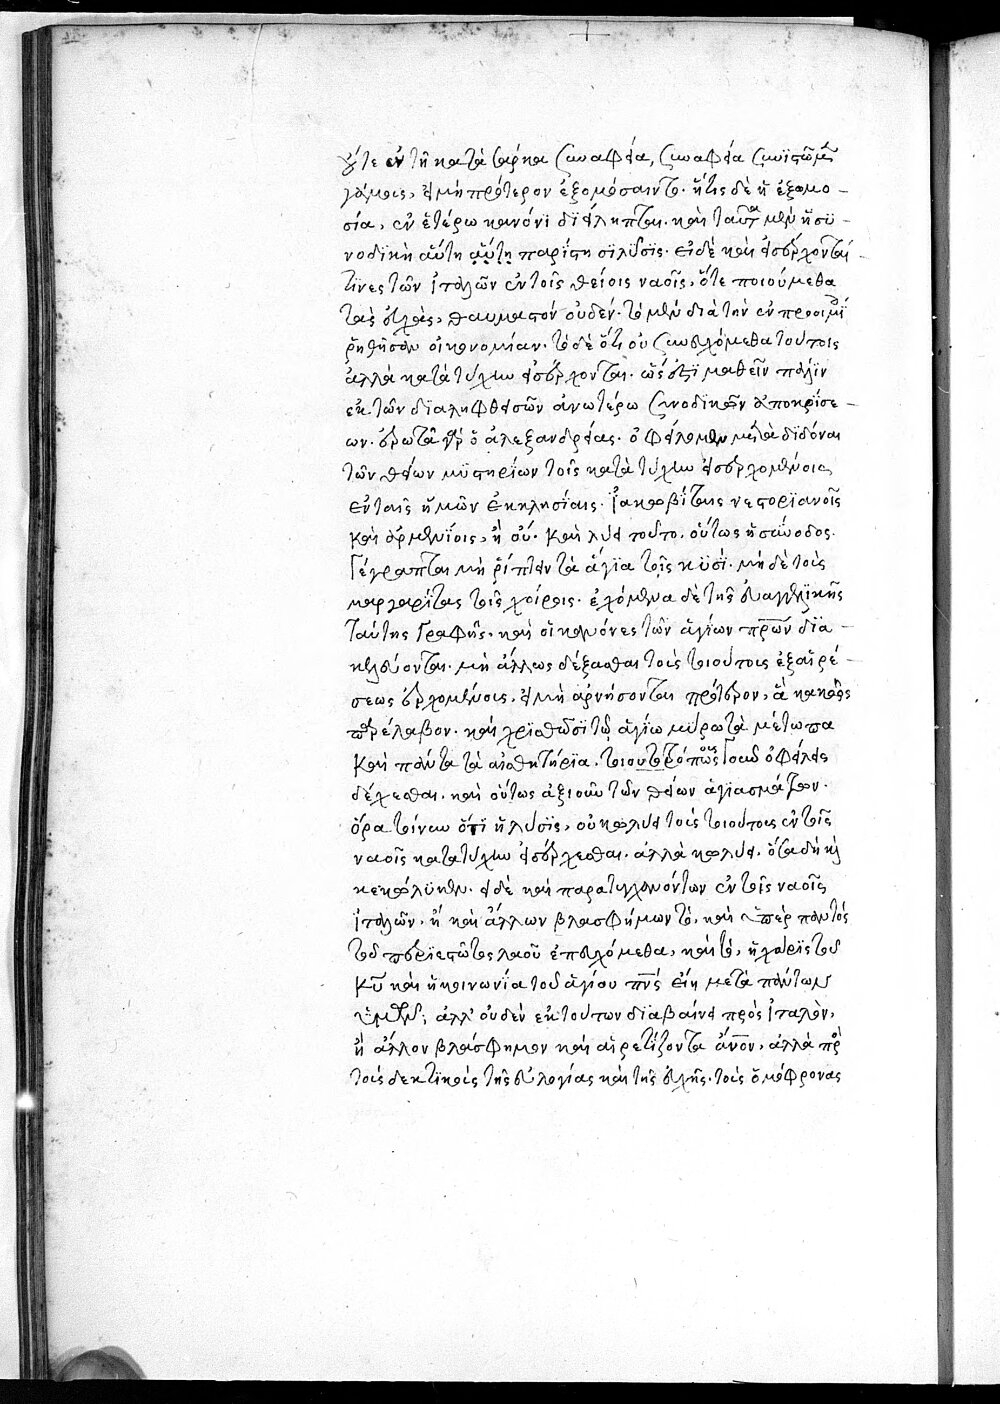 οὔτε ἐν τῆ κατὰ σάρκα συναφεία, συναφεία συνιστῶμεν
γάμοις, εἰ μὴ πρότερον ἐξομόσαιντο. ἥτις δὲ ἡ ἐξωμο-
σία, ἐν ἑτέρω κανόνι διείληπται. καὶ ταῦτα μὲν ἡ συ-
νοδικὴ αὕτη αὕτη παρίστησι λύσις. εἰ δὲ καὶ εἰσέρχονταί
τινες τῶν ἰταλῶν ἐν τοῖς θείοις ναοῖς, ὅτε ποιούμεθα
τὰς εὐχὰς, θαυμαστόν οὐδέν. τὸ μὲν διὰ τὴν ἐν προοιμίω
ῥηθῆσαν οἰκονομίαν. τὸ δὲ ὅτι οὐ συνευχόμεθα τούτοις
ἀλλὰ κατὰ τύχην εἰσέρχονται. ὡς ἔστι μαθεῖν πάλιν
ἐκ τῶν διαληφθεισῶν ἀνωτέρω συνοδικῶν ἀποκρίσε-
ων. ἐρωτᾶ γὰρ ὁ ἀλεξανδρείας. ὀφείλομεν μεταδιδόναι
τῶν θείων μυστηρίων τοῖς κατὰ τύχην εἰσερχομένοις
ἐν ταῖς ἡμῶν ἐκκλησίαις. Ἰακωβίταις νεστοριανοῖς
καὶ ἀρμενίοις, ἢ οὔ. καὶ λύει τοῦτο, οὕτως ἡ σύνοδος.
Γέγραπται μὴ ῥίπτειν τὰ ἅγια τοῖς κυσί. μὴ δὲ τοὺς
μαργαρίτας τοῖς χοίροις. ἑχόμενα δὲ τῆς εὐαγγελικῆς
ταύτης γραφῆς, καὶ οἱ κανόνες τῶν ἁγίων πρων δια-
κελεύονται. μὴ ἄλλως δέξασθαι τοὺς τοιούτοις ἐξ αἱρέ-
σεως ἐρχομένους, εἰ μὴ ἀρνήσονται πρότερον, ἃ κακῶς
παρέλαβον. καὶ χρισθῶσι τῷ ἁγίω μύρω τὰ μέτωπα
καὶ πάντα τὰ αἰσθητήρια. τοιουτοτρόπως γοῦν ὀφείλεις
δέχεσθαι. καὶ οὕτως ἀξιοῦν τῶν θείων ἁγιασμάτων.
ὅρα τοίνυν ὅτι ἡ λύσις, οὐ κωλύει τοὺς τοιούτους ἐν τοῖς
ναοῖς κατατύχην εἰσέρχεσθαι. ἀλλὰ κωλύει, ὅσα δὴ καὶ
κεκώλυκεν. εἰ δὲ καὶ παρατυγχανόντων ἐν τοῖς ναοῖς
ἰταλῶν, ἢ καὶ ἄλλων βλασφήμων τὸ, καὶ ὑπὲρ παντός
τοῦ περιεστῶτος λαοῦ ἐπευχόμεθα, καὶ τὸ, ἡ χάρις τοῦ
κυ καὶ ἡ κοινωνία τοῦ ἁγίου πνς εἴη μετὰ πάντων
ὑμῶν; ἀλλ' οὐδὲν ἐκ τούτων διαβαίνει πρὸς ἰταλὸν,
ἢ ἄλλον βλάσφημον καὶ αἱρετίζοντα ἀνον, ἀλλὰ πρὸς
τοὺς δεκτικοὺς τῆς εὐλογίας καὶ τῆς εὐχῆς. τοὺς ὁμόφρονας